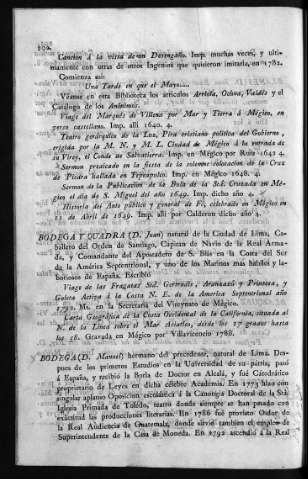 192
Cancion á la vista de un Desengaño. Imp. muchas veces, y ulti-
mamente con otras de otros Ingenios que quisieron imitarla, en 1782.
Comienza así:
Una Tarde en que el Mayo....
Véanse en esta Biblioteca los articulos Arriola, Ochoa, Valdés y el
Catálogo de los Anónimos.
Viage del Marqués de Villena por Mar y Tierra á México, en
verso castellano. Imp. alli 1640. 4.
Teatro gerárquico de la Luz, Pira cristiano política del Gobierno,
erigida por la M. N. y M. L. Ciudad de México á la entrada de
su Virey, el Conde de Salvatierra. Imp. en México por Ruiz 1642 4.
Sermon predicado en la fiesta de la solemne colocacion de la Cruz
de Piedra hallada en Tepeapulco. Imp. en México 1648. 4.
Sermon de la Publicacion de la Bula de la Sta. Cruzada en Mé-
xico el dia de S. Miguel del año 1649. Imp. dicho año 4.
Historia del Auto público y general de Fé, celebrado en México en
11 de Abril de 1649. Imp. alli por Calderon dicho año 4.
BODEGA Y QUADRA (D. Juan) natural de la Ciudad de Lima, Ca-
ballero del Orden de Santiago, Capitan de Navío de la Real Arma-
da, y Comandante del Apostadero de S. Blas en la Costa del Sur
de la América Septentrional, y uno de los Marinos mas hábiles y la-
boriosos de España. Escribió
Viage de las Fragatas Sta. Gertrudis, Aranzazú y Princesa, y
Goleta Activa á la Costa N. E. de la America Septentrional año
1792. Ms. en la Secretaría del Vireynato de México.
Carta Geográfica de la Costa Occidental de la California, situada al
N. de la Linea sobre el Mar Asiatico, desde los 17 grados hasta
los 58. Gravada en México por Villavicencio 1788.
BODEGA (D. Manuel) hermano del precedente, natural de Lima. Des-
pues de los primeros Estudios en la Universidad de su patria, pasó
á España, y recibió la Borla de Doctor en Alcalá, y fué Catedrático
proprietario de Leyes en dicha célebre Academia. En 1773 hizo con
singular aplauso Oposicion escolástica á la Canongia Doctoral de la Sta.
Iglesia Primada de Toledo, teatro donde siempre se han pesado con
exâctitud las producciones literarias. En 1786 fué provisto Oidor de
la Real Audiencia de Guatemala, donde sirvió tambien el empleo de
Superintendente de la Casa de Moneda. En 1792 ascendió á la Real